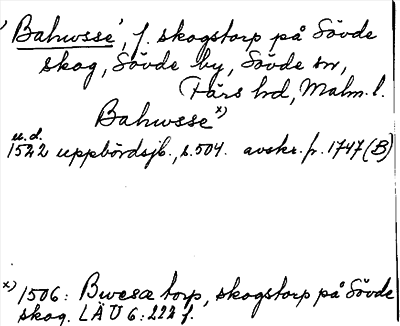 'Bahusse', f. skogstorp på Sövde
skog, Sövde by, Sövde sn,
Färs hd, Malm. l.
Bahusse x)
u.d.
1522 uppbördsjb., s. 504. avskr. fr. 1747 (B)
x) 1506: Bwesæ torp, skogstorp på Sövde
skog. LÄU 6: 222 f.